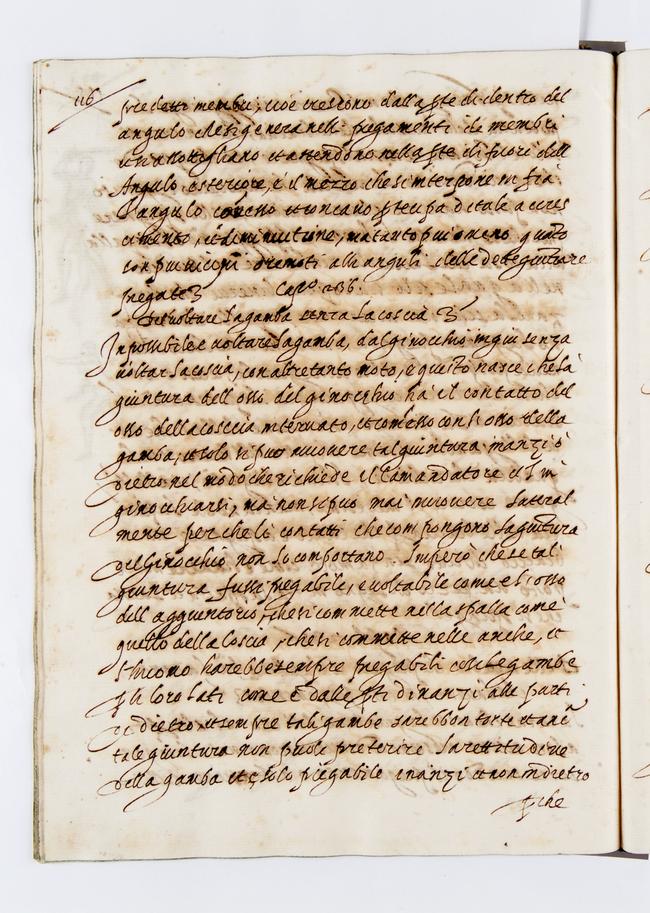 116
predetti membri, cioè crescono dalla pte di dentro del
angulo che si genera nelli piegamenti de membri
et si assottigliano et astendono nella pte di fuori dell
Angulo esteriore, e il mezzo che s'interpone in fra
l'angulo
et di tale acres
cimento, et diminutione, ma tanto piu o meno quāto
con piu vicini o remoti alli anguli delle dette giunture
piegate
Capo 236.
Di voltare la gamba senza la coscia
Impossibile è voltare la gamba, dal ginocchio in giu senza
voltar la coscia, con altretanto moto, e questo nasce che la
giuntura dell osso del ginocchio ha il contatto del
osso della coscia internato, et comesso con l osso della
gamba, et solo si puo muovere tal giuntura inanzi o
dietro nel modo che richiede il Camandatore et l in
ginocchiarsi, ma non si puo mai muovere lateral
mente perche li contatti che compongono la giuntura
del ginocchio non lo comportano. Imperò che se tal
giuntura fussi piegabile, e voltabile come e l osso
dell aggiuntorio, che si commette nella spalla come
quello della Coscia, che si committe nelle anche, et
l huomo harebbe sempre piegabili così le gambe
p li loro lati come e dalle pti dinanzi alle parti
di dietro, et sempre tali gambe sarebbon torte et anc
tale giuntura non puole preterire la rettitudine
della gamba et e solo piegabile inanzi et non indietro
pche